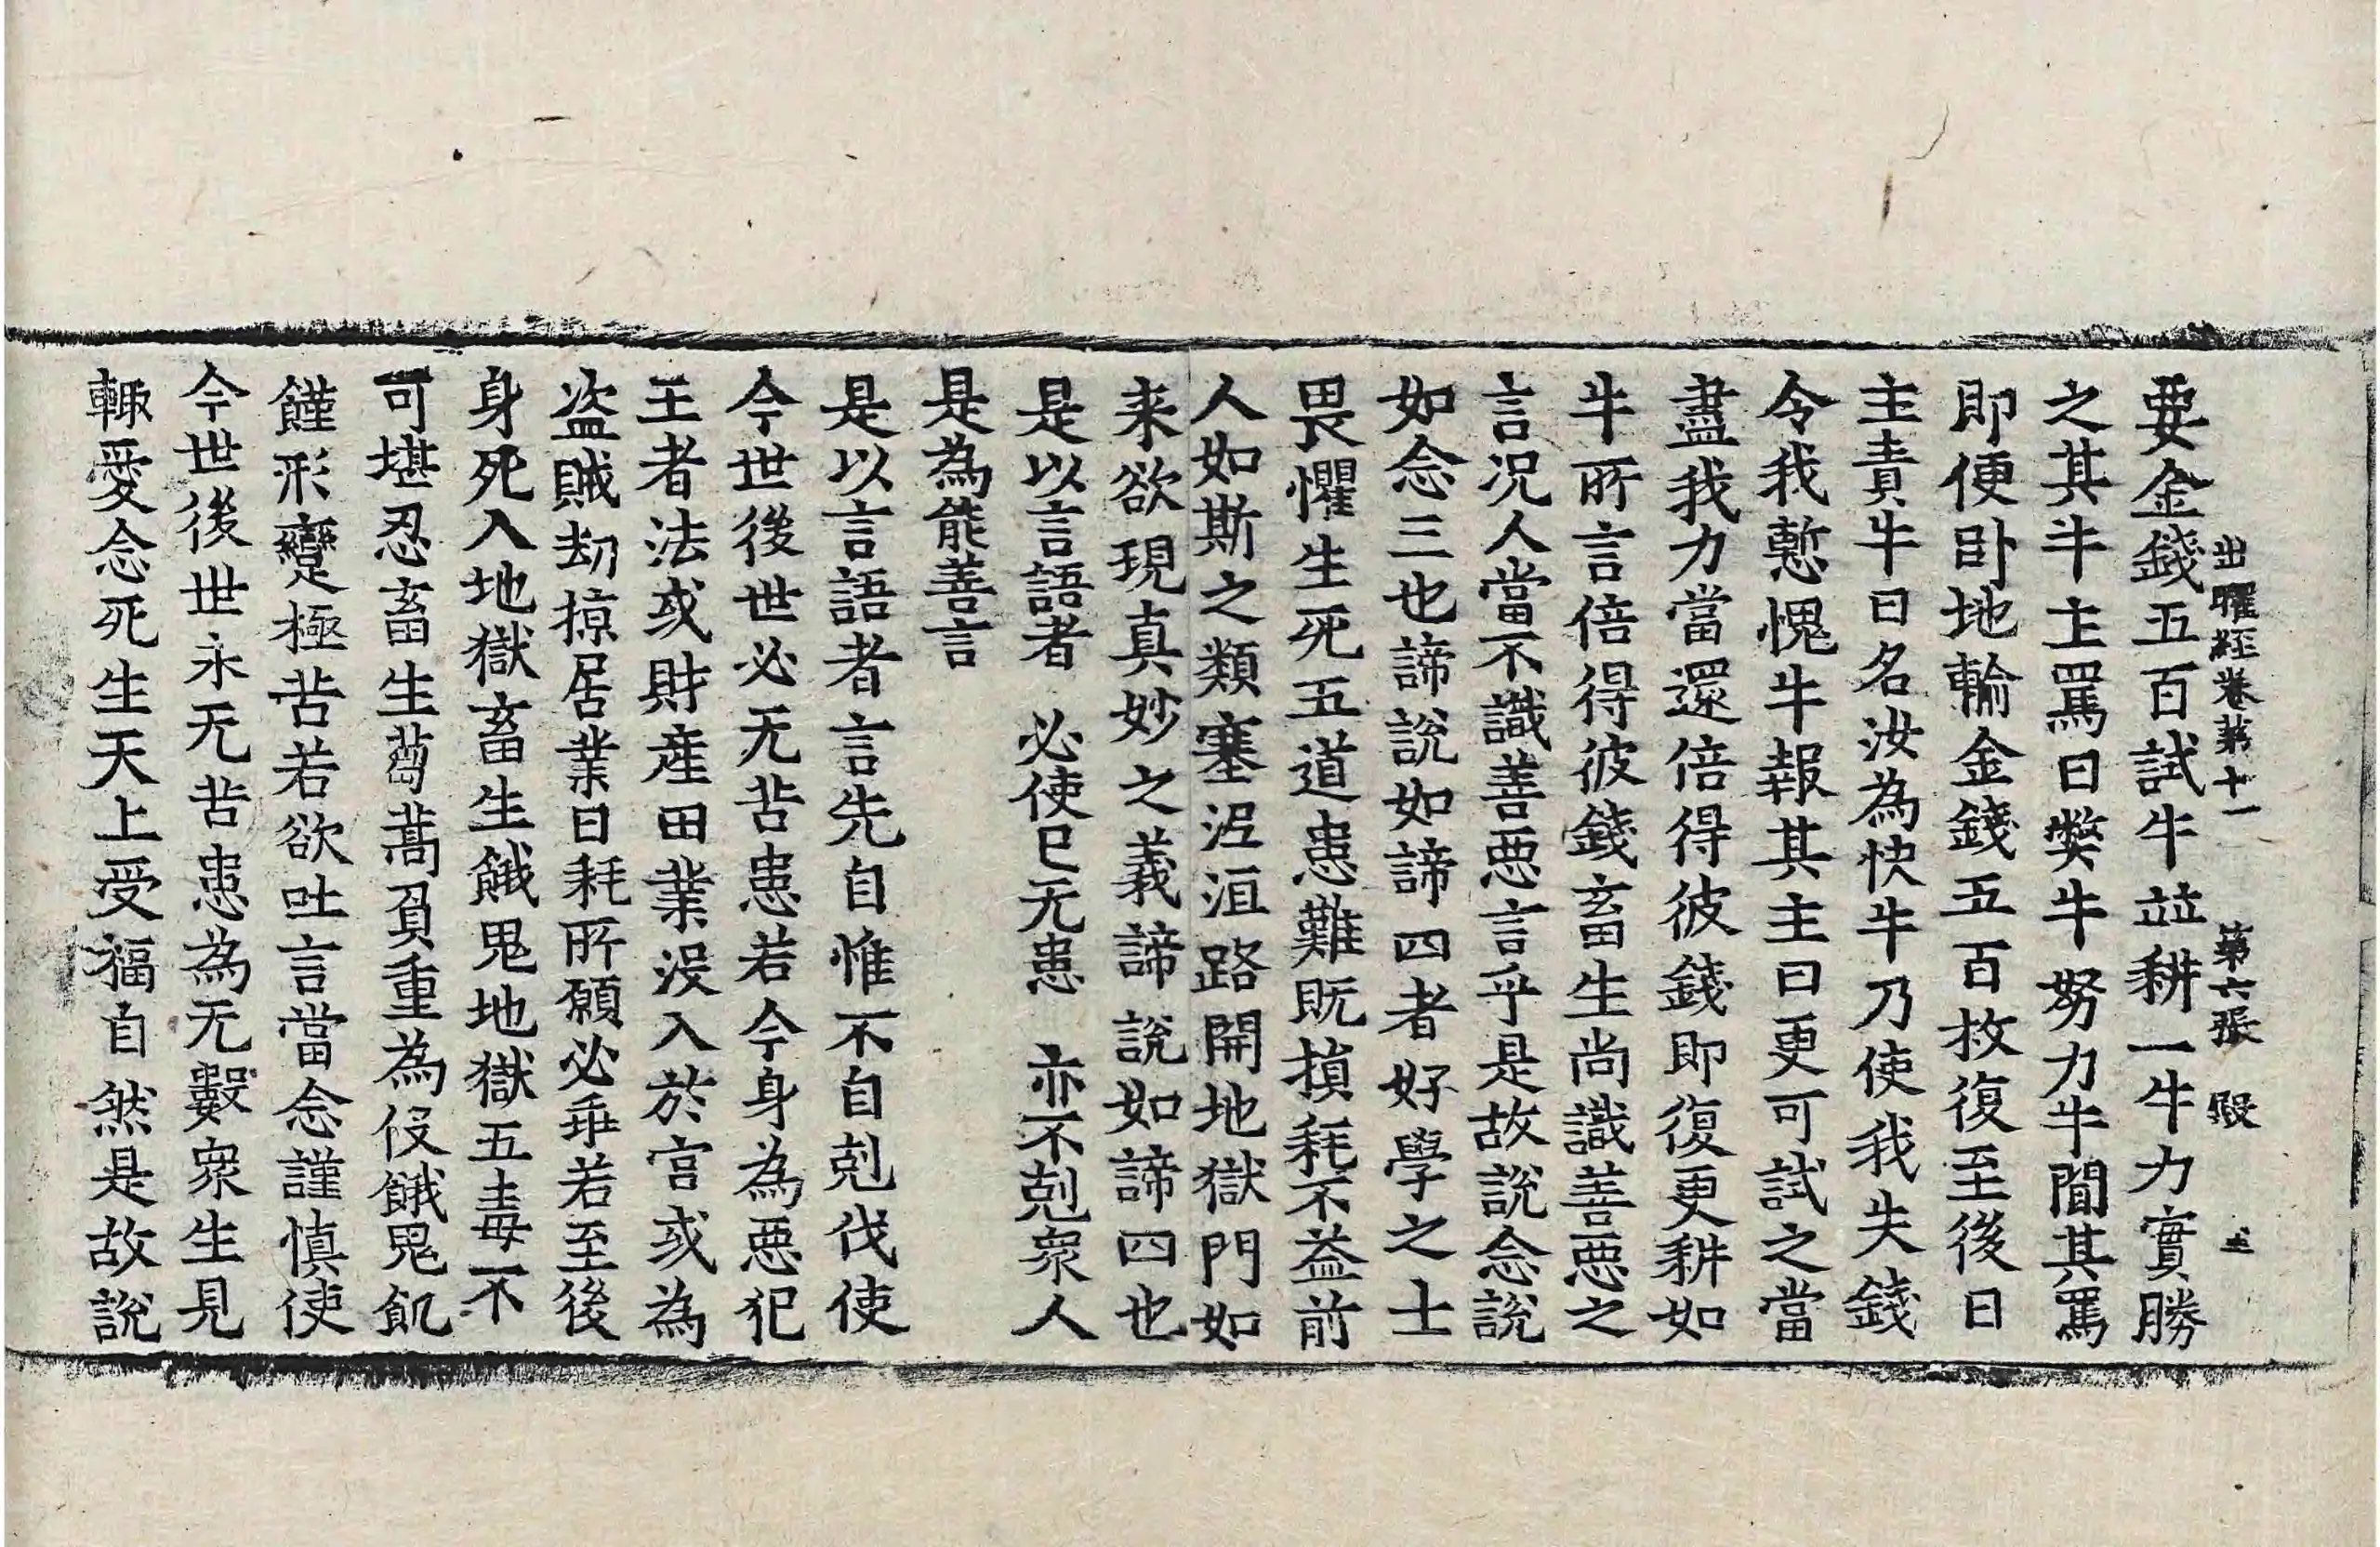 出曜經卷第十一 第六張 殷
要金錢五百試牛並耕一牛力實勝
之其牛主罵曰弊牛努力牛聞其罵
即便卧地輸金錢五百枚復至後日
主責牛曰名汝為快牛乃使我失錢
令我慙愧牛報其主曰更可試之當
盡我力當還倍得彼錢即復更耕如
牛所言倍得彼錢畜生尚識善惡之
言況人當不識善惡言乎是故說念說
如念三也諦說如諦四者好學之士
畏懼生死五道患難既損耗不益前
人如斯之類塞泥洹路開地獄門如
来欲現真妙之義諦說如諦四也
是以言語者 必使已无患 亦不剋衆人
是為能善言
是以言語者言先自惟不自剋伐使
今世後世必无苦患若今身為惡犯
王者法或財產田業沒入於官或為
盜賊劫掠居業日耗所願必乖若至後
身死入地獄畜生餓鬼地獄五毒不
可堪忍畜生芻蒿負重為役餓鬼飢
饉形變極苦若欲吐言當念謹慎使
今世後世永无苦患為无數衆生見
輙愛念死生天上受福自然是故說